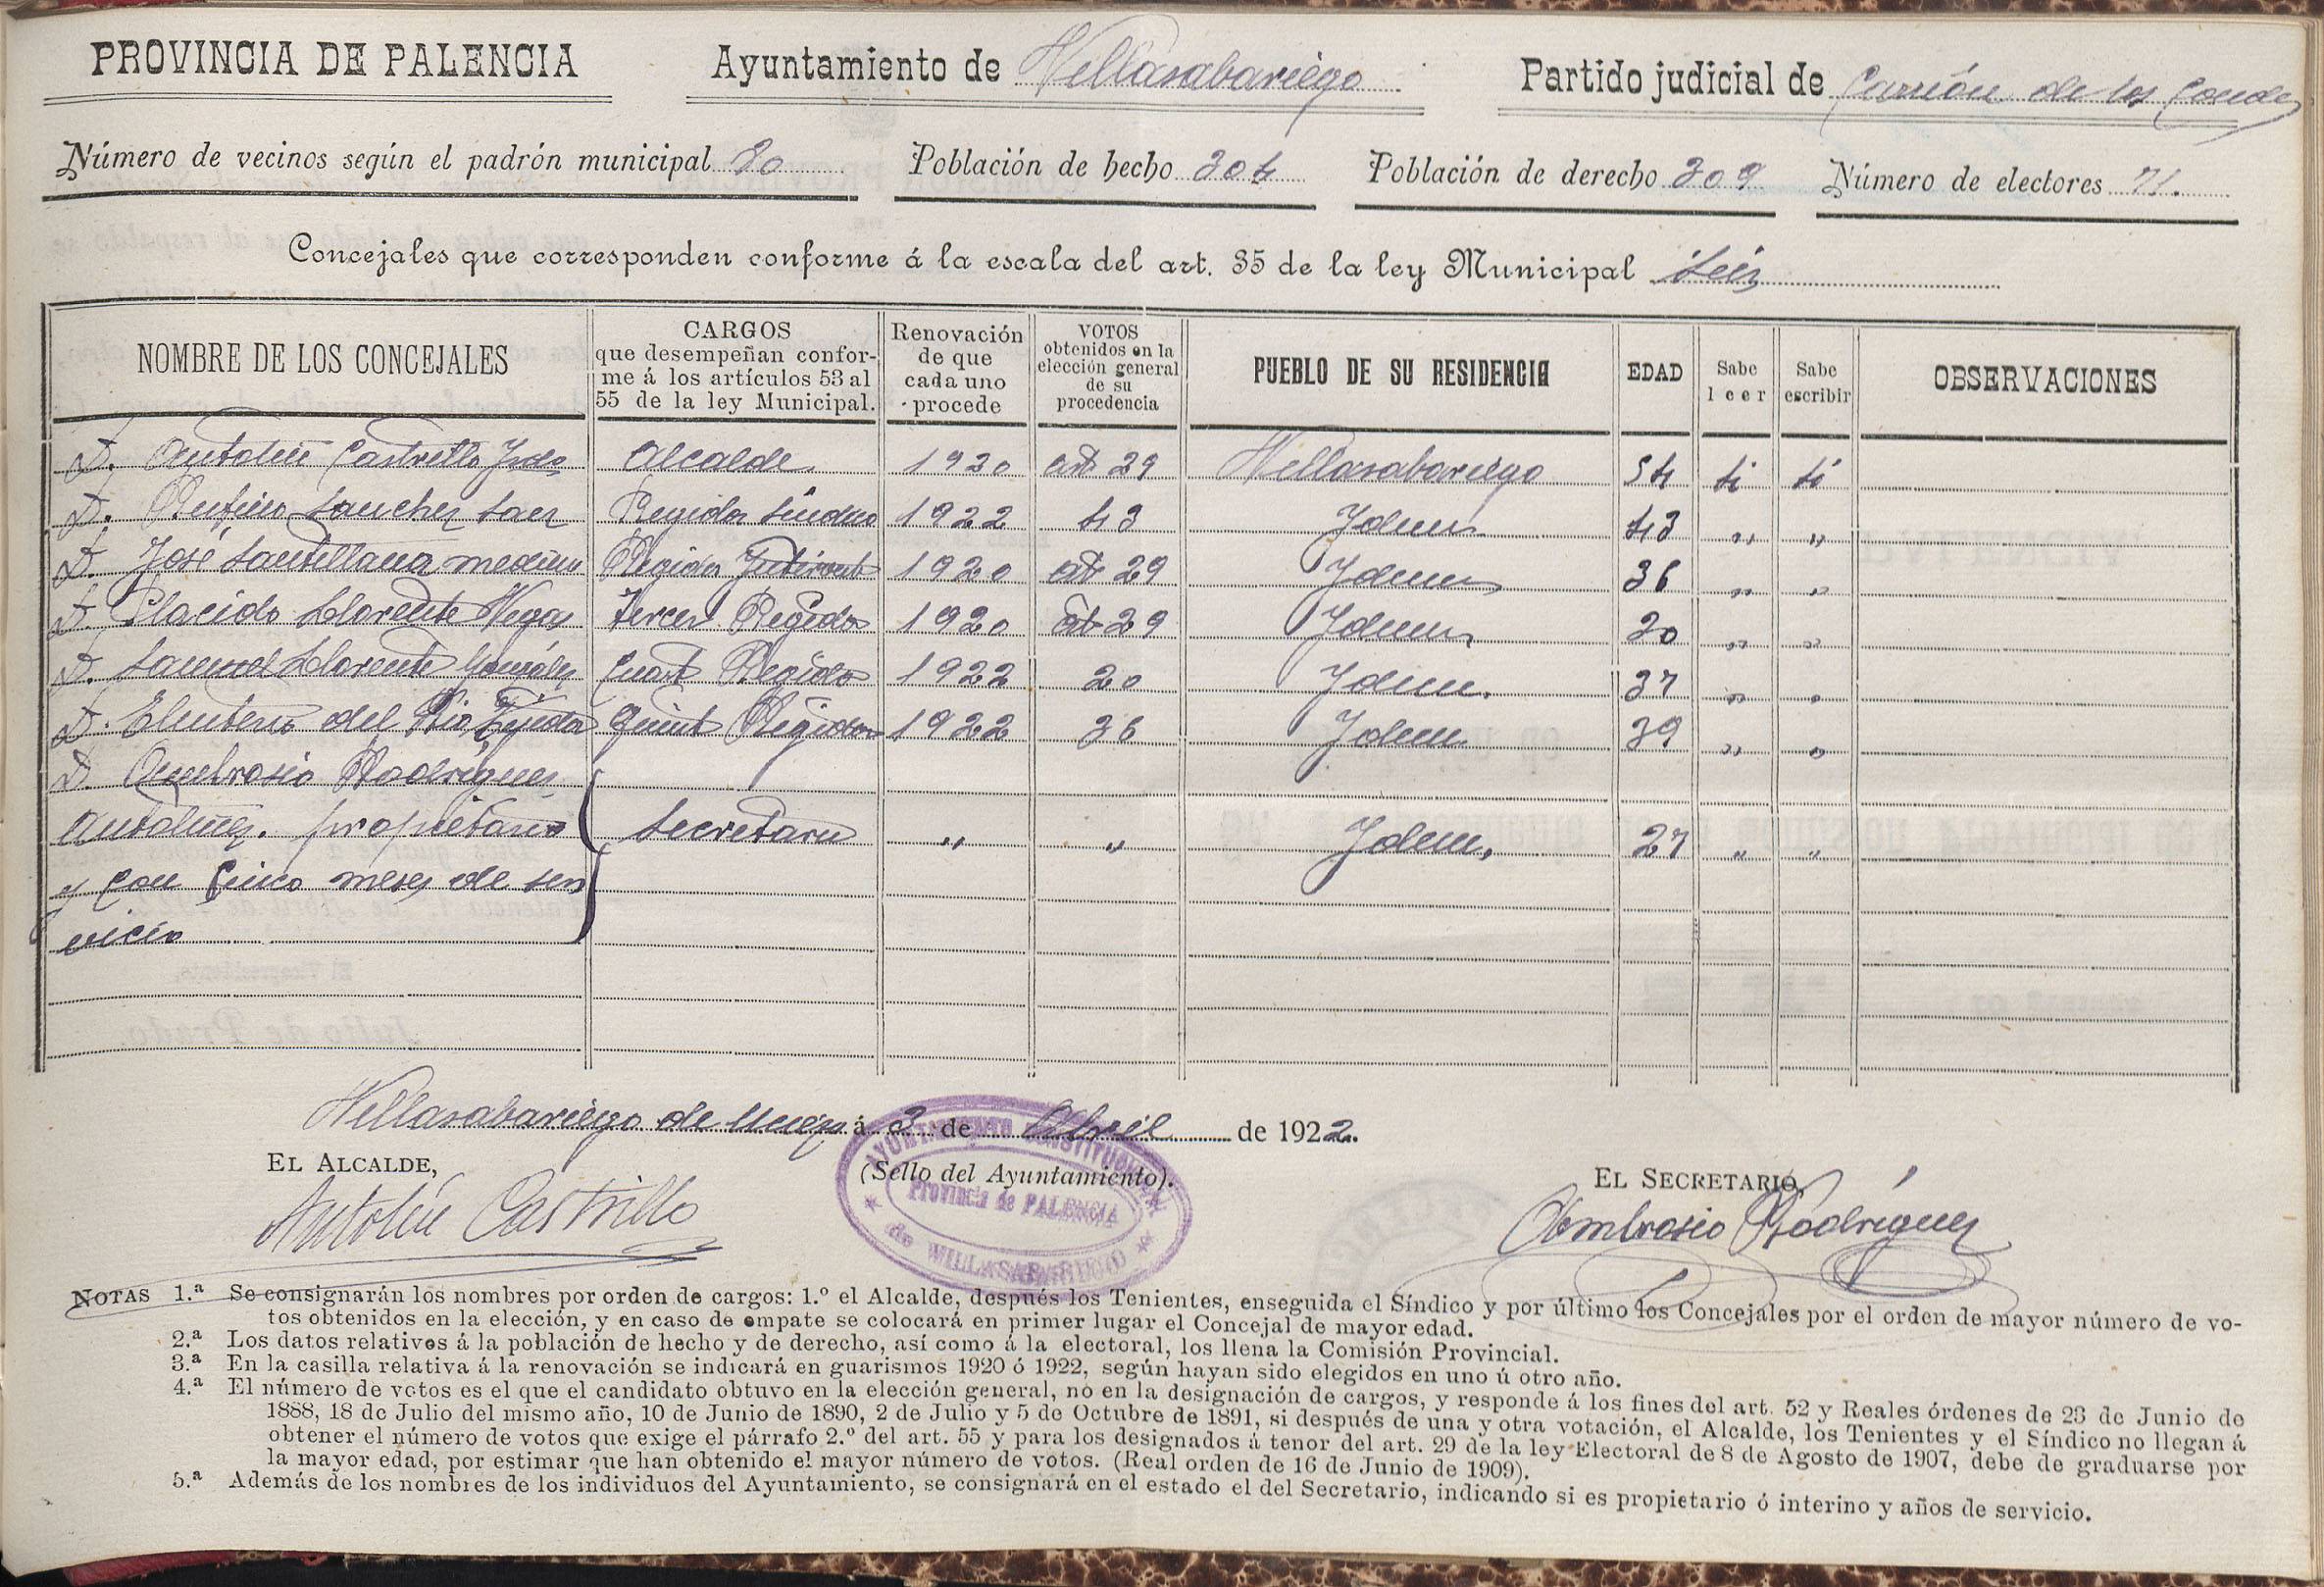 PROVINCIA DE PALENCIA Ayuntamiento de Villasabariego Partido judicial de Carrión de los Condes
Número de vecinos según el padrón municipal 80 Población de hecho 304 Población de derecho 309 Número de electores 71.
Concejales que corresponden conforme á la escala del art. 35 de la ley Municipal Seis
NOMBRE DE LOS CONCEJALES
CARGOS
que desempeñan confor-
me á los artículos 53 al
55 de la ley Municipal.
Renovación
de que
cada uno
procede
VOTOS
obtenidos en la
elección general
de su
procedencia
PUEBLO DE SU RESIDENCIA
EDAD
Sabe
leer
Sabe
escribir
OBSERVACIONES
D. Antolín Castrillo Alcalde 1920 art 29 Villasabariego 54 si sí
D. Rufino Sanchez Saez Regidor Síndico 1922 43 Idem 43 " "
D. José Santillana medina Regidor 1920 art 29 Idem 36 " "
D. Placido Llorente Vegas Tercer Regidor 1920 art 29 Idem 30 " "
D. Samuel Llorente González Cuart Regidor 1922 20 Idem. 37 " "
D. Eleuterio del Rio Tejedor Quint Regidor 1922 36 Idem 39 " "
D. Ambrosio Rodriguez
Antolinez. propietario Secretario " " Idem. 27 " "
y con Cinco meses de ser
vicio
Villasabariego de Ucieza á 3 de Abril de 1922.
EL ALCALDE, (Sello del Ayuntamiento). EL SECRETARIO,
AYUNTAMIENTO CONSTITUCIONAL
Provincia de PALENCIA
de VILLASABARIEGO
Antolín Castrillo Ambrosio Rodríguez
NOTAS 1.ª Se consignarán los nombres por orden de cargos: 1.º el Alcalde, después los Tenientes, enseguida el Síndico y por último los Concejales por el orden de mayor número de vo-
tos obtenidos en la elección, y en caso de empate se colocará en primer lugar el Concejal de mayor edad.
2.ª Los datos relativos á la población de hecho y de derecho, así como á la electoral, los llena la Comisión Provincial.
3.ª En la casilla relativa á la renovación se indicará en guarismos 1920 ó 1922, según hayan sido elegidos en uno ú otro año.
4.ª El número de votos es el que el candidato obtuvo en la elección general, no en la designación de cargos, y responde á los fines del art. 52 y Reales órdenes de 23 de Junio de
1888, 18 de Julio del mismo año, 10 de Junio de 1890, 2 de Julio y 5 de Octubre de 1891, si después de una y otra votación, el Alcalde, los Tenientes y el Síndico no llegan á
obtener el número de votos que exige el párrafo 2.º del art. 55 y para los designados á tenor del art. 29 de la ley Electoral de 8 de Agosto de 1907, debe de graduarse por
la mayor edad, por estimar que han obtenido el mayor número de votos. (Real orden de 16 de Junio de 1909).
5.ª Además de los nombres de los individuos del Ayuntamiento, se consignará en el estado el del Secretario, indicando si es propietario ó interino y años de servicio.